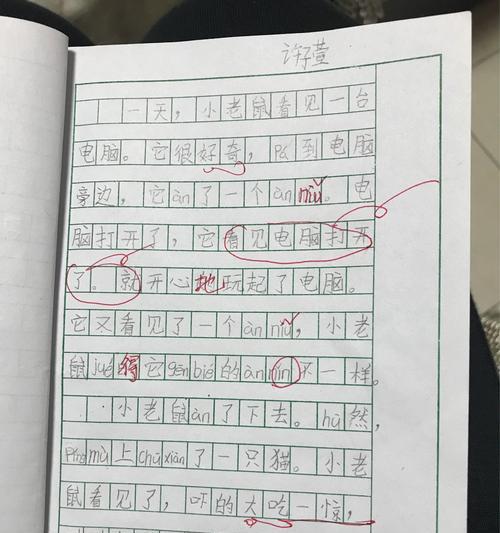 许子萱
一天，小老鼠看见一台
电脑。它很好奇，pá到电脑
旁边，它àn了一个àn niǔ。电
脑打开了，它看见电脑打开
了。就开心地玩起了电脑。
它又看见了一个àn niǔ，小老
鼠jué得它gēn bié的àn nin不一样。
小老鼠àn了下去。hū然，
píng mù上chū xiàn了一只猫。小老
鼠看见了，吓的大吃一惊，